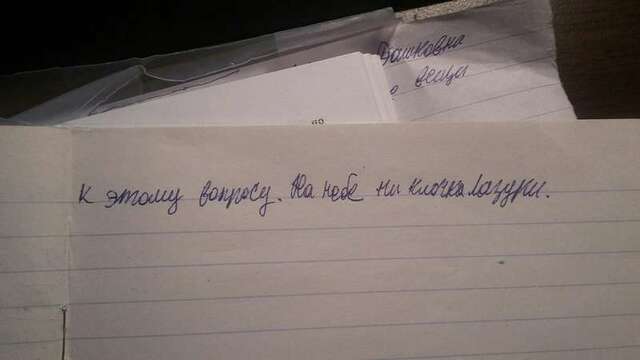 Дашковна
е вещи
к этому вопросу. На небе ни клочка лазури.